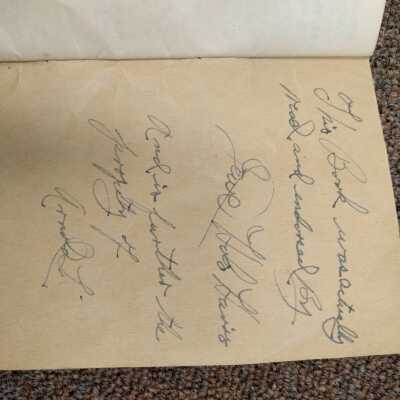 This Book was actually
read and endorsed By
Davis
And is further the
property of
Arnold L.